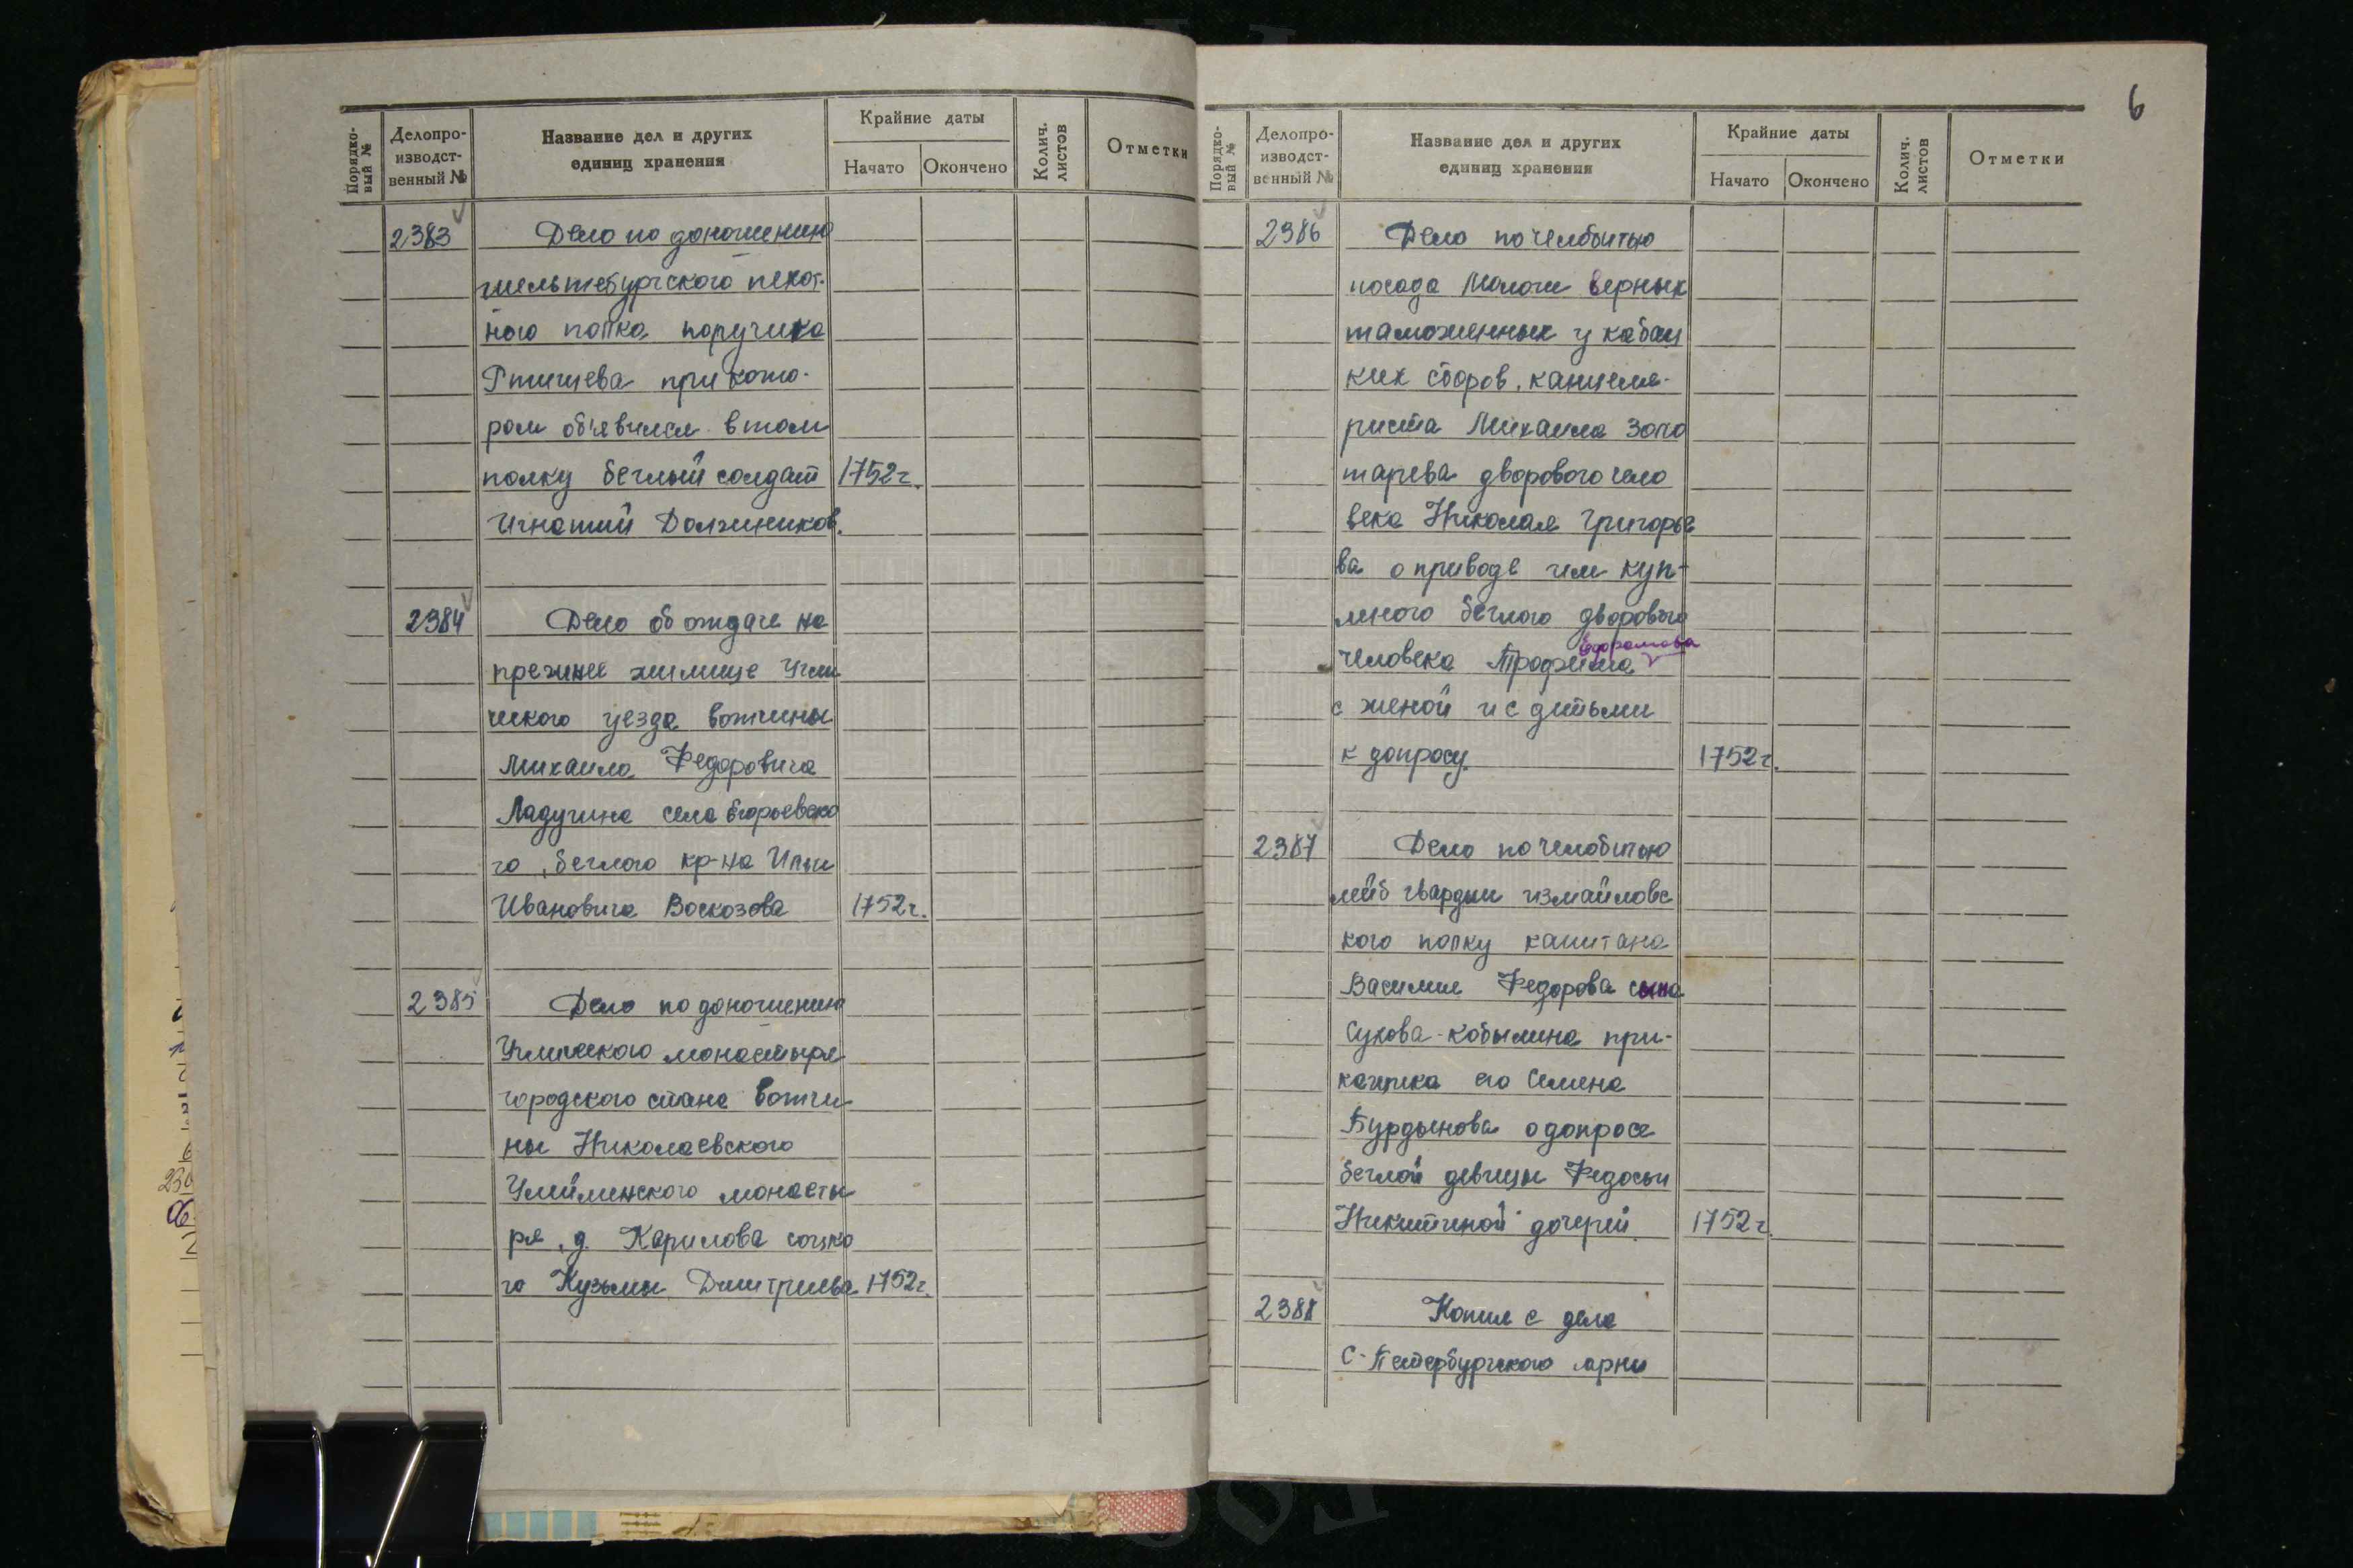 6
Порядко-
вый №
Делопро-
изводст-
венный №
Название дел и других
единиц хранения
Крайние даты
Начато
Окончено
Колич.
листов
Отметки
2383 Дело по доношению
шельтебургского пехот-
ного полка поручика
Ртищева при кото-
ром об'явился в том
полку беглый солдат 1752г.
Игнатий Должников.
2384 Дело об отдаче на
прежнее жилище Угли
чского уезда вотчины
Михаила Федоровича
Ладугина села Егорьевско
го, беглого кр-на Ильи
Ивановича Воскозова 1752г.
2385 Дело по доношению
Угличского монастыря
городского стана вотчи
ны Николаевского
Улейминского монасты
ря, д. Карилова соцко
го Кузьмы Дмитриева 1752г.
Порядко-
вый №
Делопро-
изводст-
венный №
Название дел и других
единиц хранения
Крайние даты
Начато
Окончено
Колич.
листов
Отметки
2386 Дело по челбитью
посада Мологи верных
таможенных у кабац
ких сборов, канцеля-
риста Михаила Золо
тарева дворового чело
века Николая Григорье
ва о приводе им куп-
леного беглого дворового
Ефремова
человека Трофима
с женой и с дитьми
к допросу. 1752г.
2387 Дело по челобитью
лейб гвардии измайловс
кого полку капитана
Василия Федорова сына
Сухова-Кобылина при-
кащика его Семена
Бурдынова о допросе
беглой девицы Федосьи
Никитиной дочерей. 1752г.
2388 Копия с дела
С-Петербургского гарни